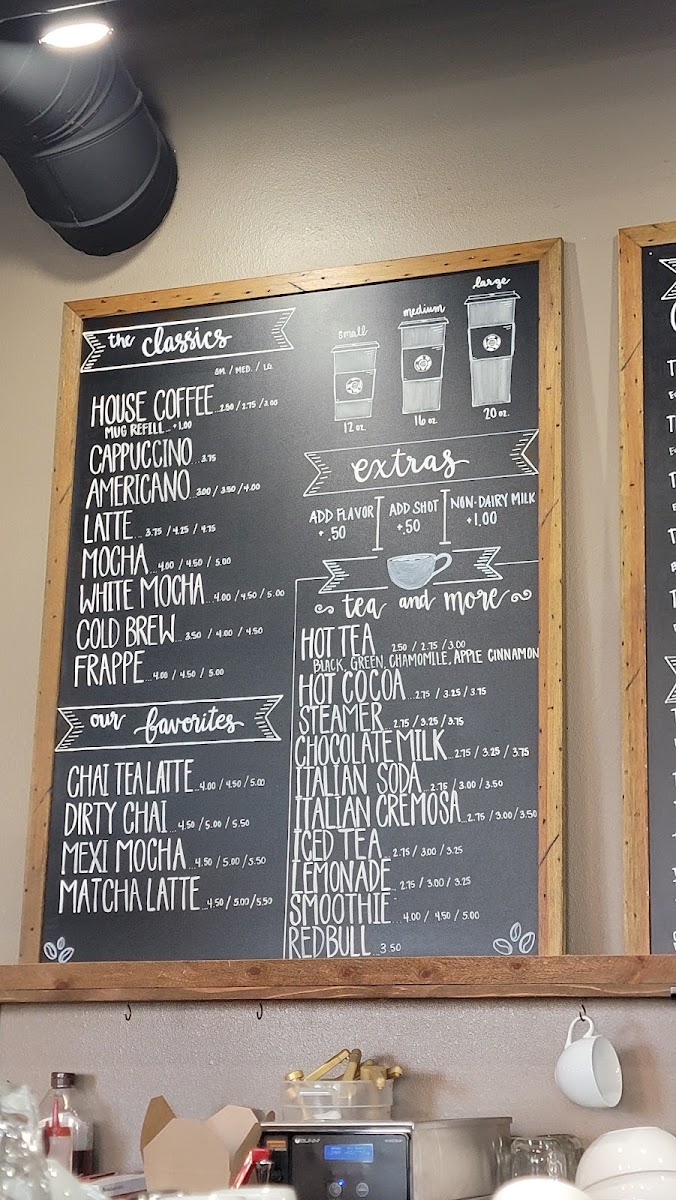 the classics
SM. / MED. / LG.
HOUSE COFFEE...2.50 / 2.75 / 3.00
MUG REFILL...+1.00
CAPPUCCINO...3.75
AMERICANO...3.00 / 3.50 / 4.00
LATTE...3.75 / 4.25 / 4.75
MOCHA...4.00 / 4.50 / 5.00
WHITE MOCHA...4.00 / 4.50 / 5.00
COLD BREW...3.50 / 4.00 / 4.50
FRAPPE...4.00 / 4.50 / 5.00
our favorites
CHAI TEA LATTE...4.00 / 4.50 / 5.00
DIRTY CHAI...4.50 / 5.00 / 5.50
MEXI MOCHA...4.50 / 5.00 / 5.50
MATCHA LATTE...4.50 / 5.00 / 5.50
small
medium
large
12 oz.
16 oz.
20 oz.
extras
ADD FLAVOR
+.50
ADD SHOT
+.50
NON-DAIRY MILK
+1.00
tea and more
HOT TEA 2.50 / 2.75 / 3.00
BLACK, GREEN, CHAMOMILE, APPLE CINNAMON
HOT COCOA...2.75 / 3.25 / 3.75
STEAMER...2.75 / 3.25 / 3.75
CHOCOLATE MILK...2.75 / 3.25 / 3.75
ITALIAN SODA...2.75 / 3.00 / 3.50
ITALIAN CREMOSA...2.75 / 3.00 / 3.50
ICED TEA...2.75 / 3.00 / 3.25
LEMONADE...2.75 / 3.00 / 3.25
SMOOTHIE...4.00 / 4.50 / 5.00
REDBULL...3.50
BUNN